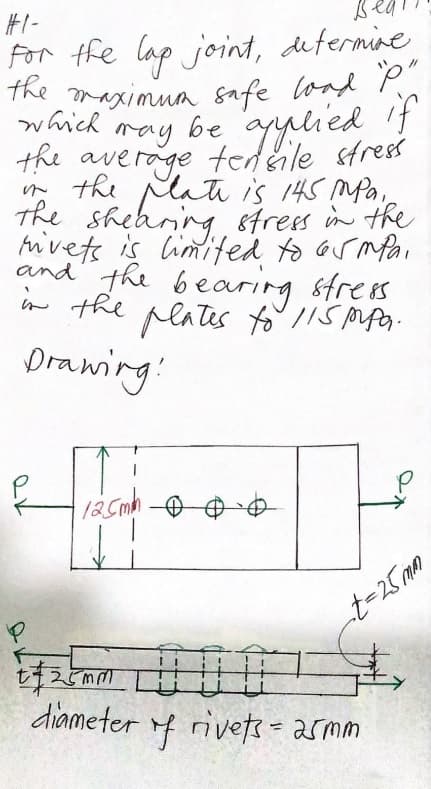 #1-
For the lap joint, determine
the maximum safe load "P"
which may be applied if
the average tensile stress
in the plate is 145 MPa,
The shearing stress in the
rivets is limited to 65 MPa,
and the bearing stress
in the plates to 115 MPa.
Drawing:
P
P
125mm
t=25 mm
P
t=25mm
diameter of rivets = 25mm